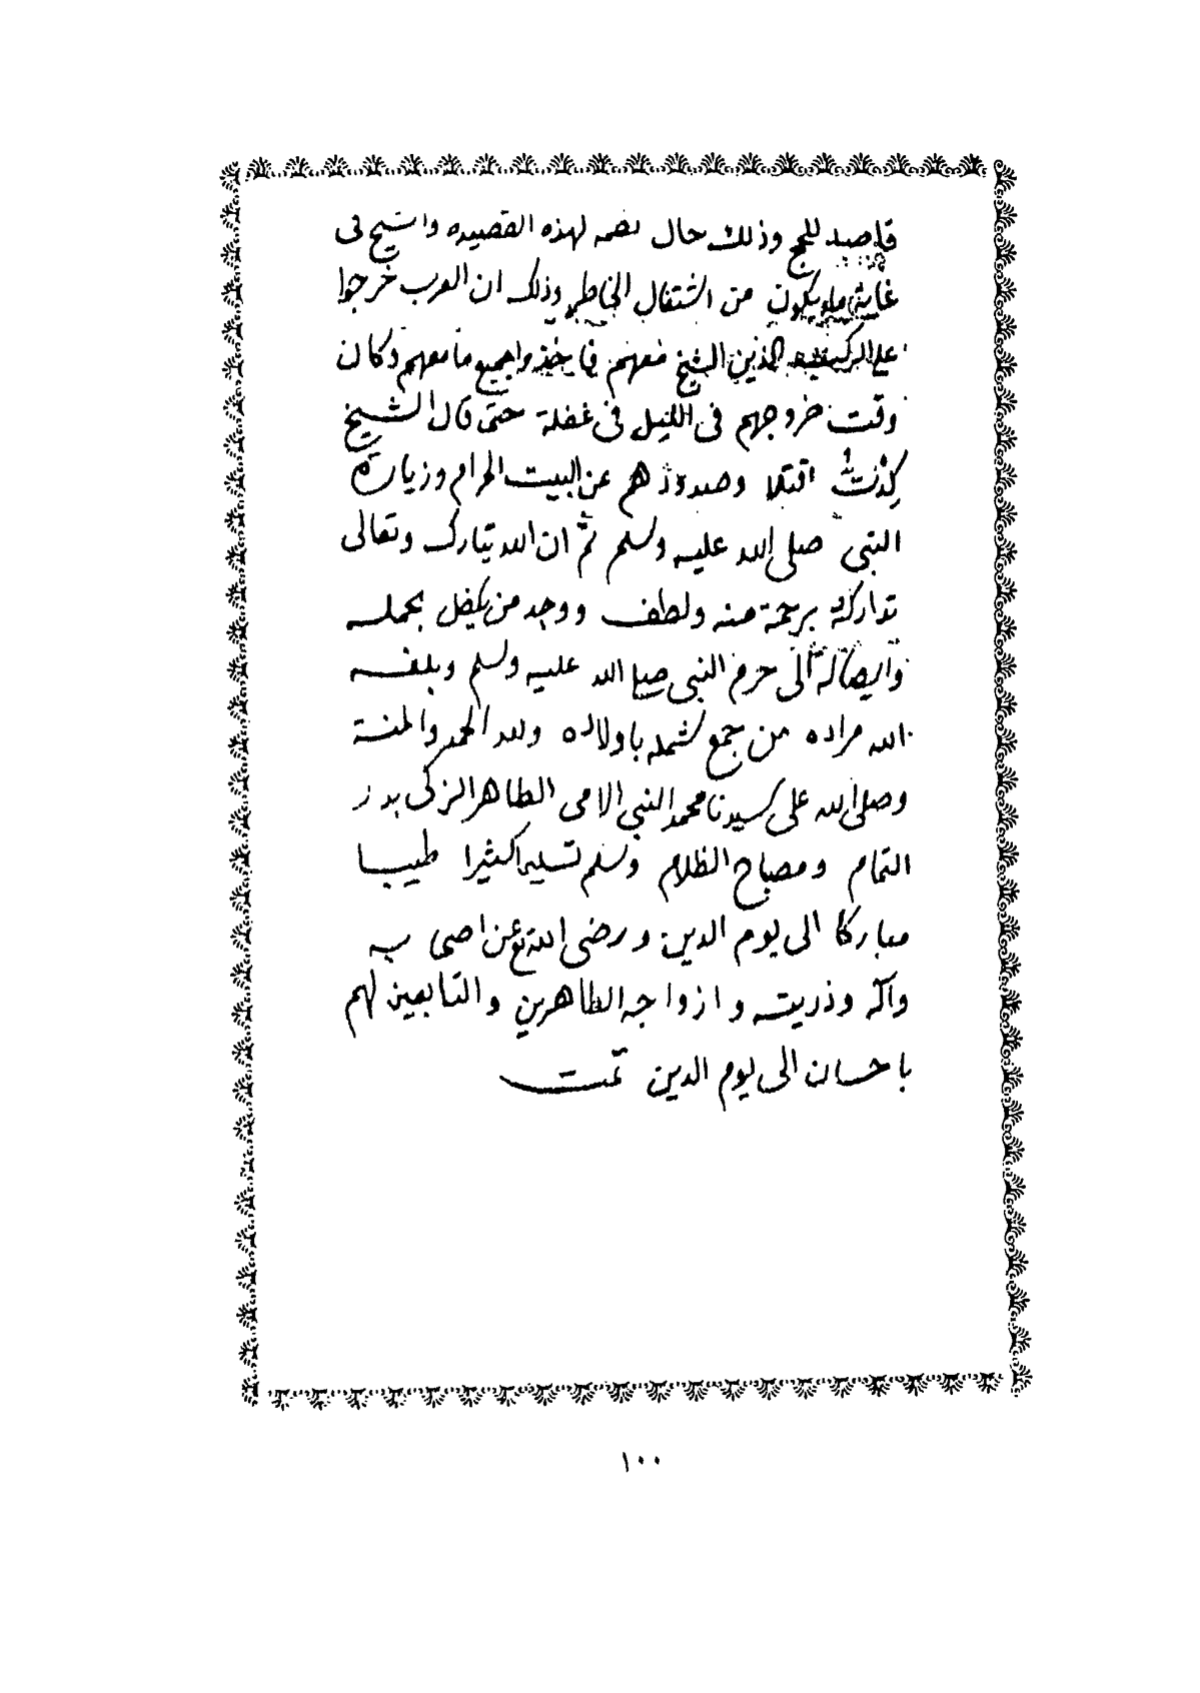 قاصد للحج وذلك حال نظمه لهذه القصيده والشيخ فى
غاية ما يكون من اشتغال الخاطر وذلك ان العرب خرجوا
على الركب الذين الشيخ معهم فاخذوا جميع ما معهم وكان
وقت خروجهم فى الليل فى غفلة حتى قال الشيخ
كدت اقتلا وصدوهم عن البيت الحرام وزيارة
النبى صلى الله عليه وسلم ثم ان الله تبارك وتعالى
تداركه برحمة منه ولطف ووجد من يكفل بحمله
وايصاله الى حرم النبى صلى الله عليه وسلم وبلغه
الله مراده من جمع شمله باولاده ولله الحمد والمنة
وصلى الله على سيدنا محمد النبى الامى الطاهر الزكى بدر
التمام ومصباح الظلام وسلم تسليما كثيرا طيبا
مباركا الى يوم الدين ورضى الله عن اصحابه
وآله وذريته وازواجه الطاهرين والتابعين لهم
باحسان الى يوم الدين تمت
١٠٠